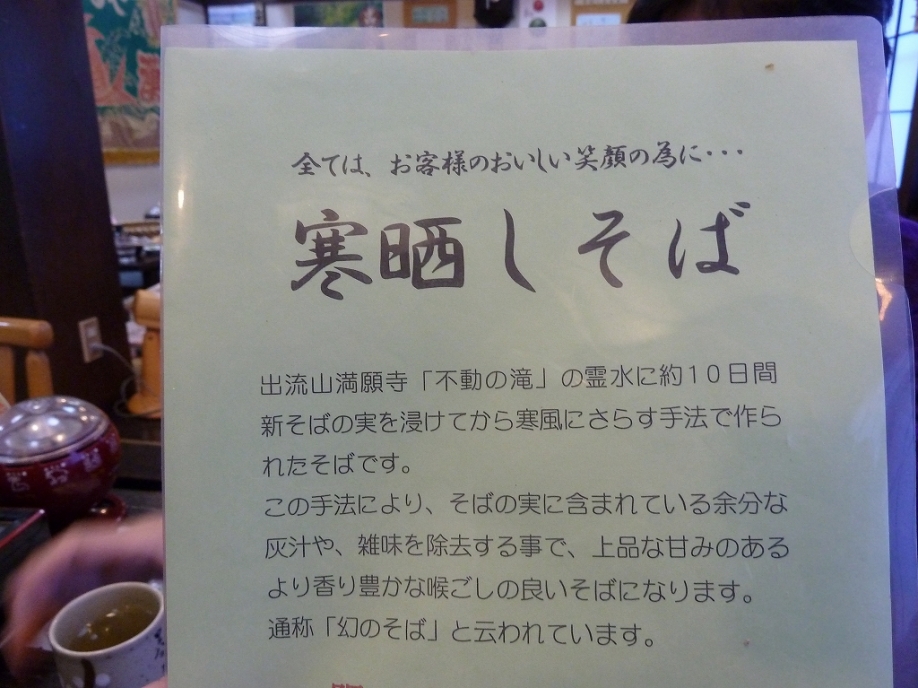 全ては、お客様のおいしい笑顔の為に・・・
寒晒しそば
出流山満願寺「不動の滝」の霊水に約１０日間
新そばの実を浸けてから寒風にさらす手法で作ら
れたそばです。
この手法により、そばの実に含まれている余分な
灰汁や、雑味を除去する事で、上品な甘みのある
より香り豊かな喉ごしの良いそばになります。
通称「幻のそば」と云われています。